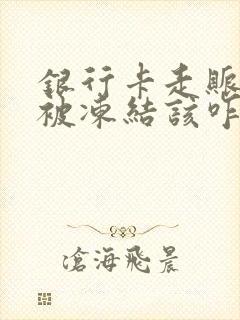 銀行卡走賬
被凍結該咋
滄海飛晨